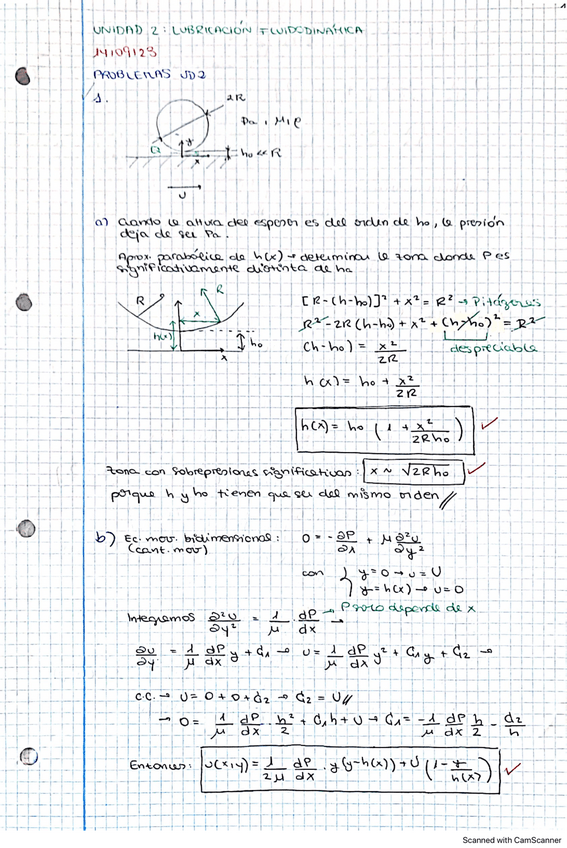 1
UNIDAD 2: LUBRICACIÓN FLUIDODINÁMICA
14109123
PROBLEMAS UD2
1.
2R
Pa, μ, ρ
y
x
h₀ << R
U
a) Cuando la altura del espesor es del orden de h₀, la presión
deja de ser Pa.
Aprox. parabólica de h(x) → determinar la zona donde P es
significativamente distinta de ha
R R x h(x) h₀ x
[R-(h-h₀)]² + x² = R² → Pitágoras
R² - 2R(h-h₀) + x² + (h-h₀)² = R²
despreciable
(h-h₀) = x²/2R
h(x) = h₀ + x²/2R
h(x) = h₀ (1 + x²/2Rh₀) ✓
Zona con sobrepresiones significativas: x ~ √2Rh₀ ✓
porque h y h₀ tienen que ser del mismo orden //
b) Ec. mov. bidimensional: 0 = -∂P/∂x + μ ∂²u/∂y²
(cant. mov)
con { y=0 → u=U
y=h(x) → u=0
Integremos ∂²u/∂y² = 1/μ · dP/dx → P solo depende de x
∂u/∂y = 1/μ dP/dx y + C₁ → u = 1/μ dP/dx y² + C₁y + C₂ →
C.C. → U = 0 + 0 + C₂ → C₂ = U //
→ 0 = 1/μ dP/dx · h²/2 + C₁h + U → C₁ = -1/μ dP/dx h/2 - C₂/h
Entonces: u(x,y) = 1/2μ dP/dx · y(y-h(x)) + U (1 - y/h(x)) ✓
Scanned with CamScanner